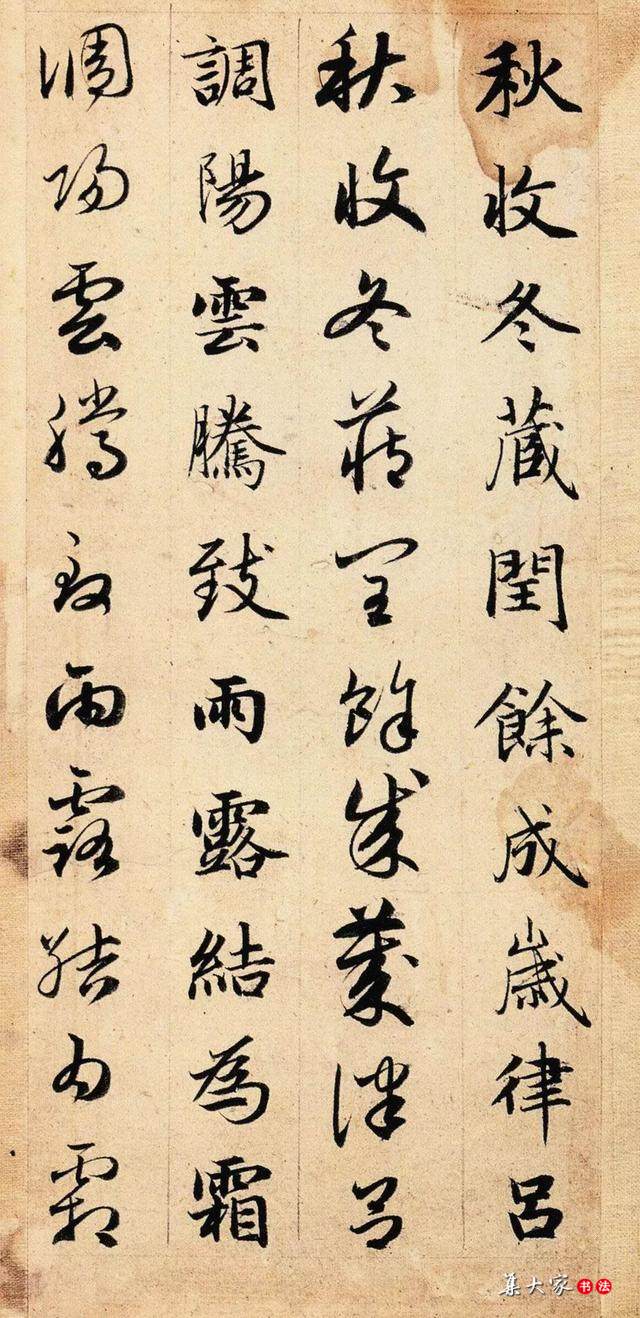 秋收冬藏閏餘成歲律呂
秋收冬藏閏餘成歲律呂
調陽雲騰致雨露結為霜
調陽雲騰致雨露結為霜
集大家书法